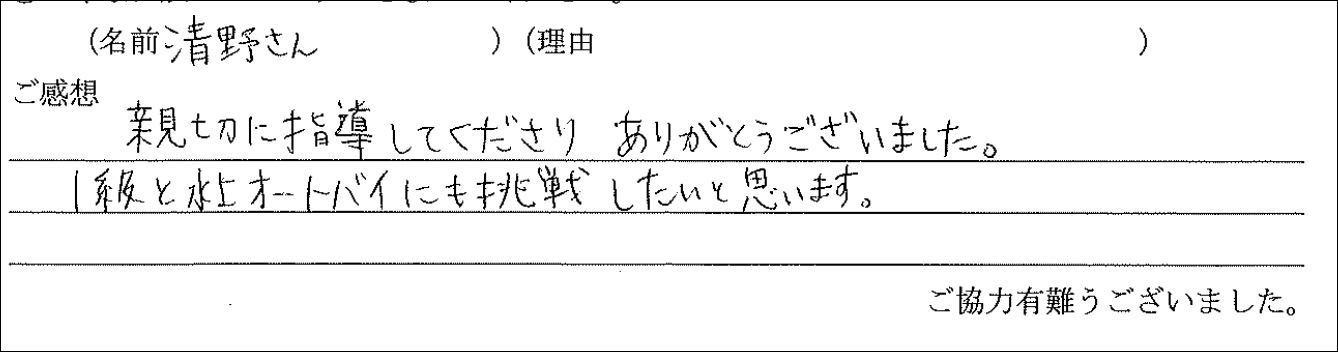 (名前 清野さん ) (理由 )
ご感想
親切に指導してくださり ありがとうございました。
1級と水上オートバイにも挑戦したいと思います。
ご協力有難うございました。